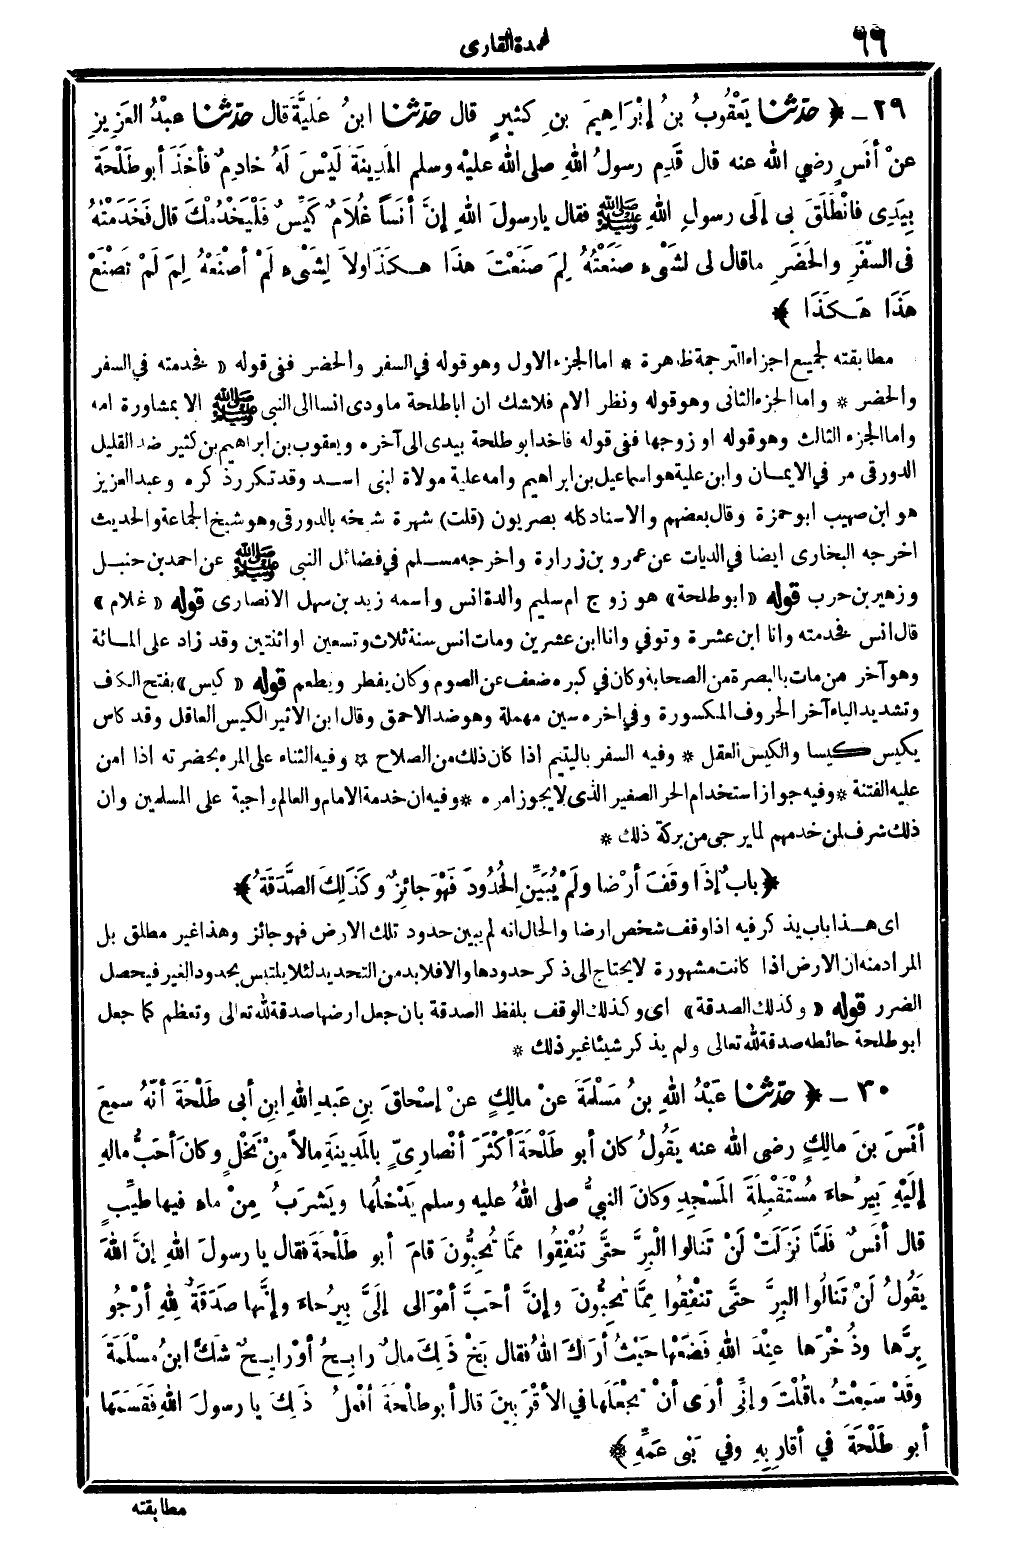 ٦٦
عمدة القارى
٢٩ ـ ﴿ حَدَّثَنَا يَعْقُوبُ بنُ إِبْرَاهِيمَ بنِ كَثِيرٍ قال حَدَّثَنَا ابنُ عُلَيَّةَ قال حَدَّثَنَا عبْدُ العَزِيزِ
عنْ أنَسٍ رضي الله عنه قال قَدِم رسولُ اللهِ صلى الله عليْه وسلم المَدِينَةَ لَيْسَ لَهُ خادِمٌ فأخَذَ أبو طَلْحَةَ
بِيَدِى فانْطَلَقَ بى إلَى رسولِ اللهِ ﷺ فقال يارسولَ اللهِ إنَّ أنَساً غُلاَمٌ كَيِّسٌ فَلْيَخْدُمْكَ قال فَخَدَمْتُهُ
فى السَّفَرِ والحَضَرِ ماقال لى لشَىْءٍ صنَعْتُهُ لِمَ صنَعْتَ هذَا هٰكَذَا ولاَ لِشَىْءٍ لَمْ أصْنَعْهُ لِمَ لَمْ تَصْنَعْ
هَذَا هٰكَذَا ﴾
مطابقته لجميع اجزاء الترجمة ظاهرة * اما الجزء الاول وهو قوله في السفر والحضر ففى قوله « فخدمته في السفر
والحضر * واما الجزء الثانى وهو قوله ونظر الام فلاشك ان اباطلحة ماودى انسا الى النبى ﷺ الا بمشاورة امه
واما الجزء الثالث وهو قوله او زوجها ففى قوله فاخد ابو طلحة بيدى الى آخره ويعقوب بن ابراهيم بن كثير ضد القليل
الدورقى مر في الايمان وابن علية هو اسماعيل بن ابراهيم وامه علية مولاة لبنى اسد وقد تكرر ذكره وعبد العزيز
هو ابن صهيب ابو حمزة وقال بعضهم والاسناد كله بصريون (قلت) شهرة شيخه بالدورقى وهو شيخ الجماعة والحديث
اخرجه البخارى ايضا في الديات عن عمرو بن زرارة واخرجه مسلم في فضائل النبى ﷺ عن احمد بن حنبل
وزهير بن حرب قوله «ابو طلحة» هو زوج ام سليم والدة انس واسمه زيد بن سهل الانصارى قوله « غلام »
قال انس فخدمته وانا ابن عشرة وتوفي وانا ابن عشرين ومات انس سنة ثلاث وتسعين او اثنتين وقد زاد على المائة
وهو آخر من مات بالبصرة من الصحابة وكان في كبره ضعف عن الصوم وكان يفطر ويطعم قوله « كيس » بفتح الكاف
وتشديد الياء آخر الحروف المكسورة وفي اخره سين مهملة وهو ضد الاحمق وقال ابن الاثير الكيس العاقل وقد كاس
يكيس كيسا والكيس العقل * وفيه السفر باليتيم اذا كان ذلك من الصلاح ☆ وفيه الثناء على المرء بحضرته اذا امن
عليه الفتنة * وفيه جواز استخدام الحر الصغير الذى لايجوز امره * وفيه ان خدمة الامام والعالم واجبة على المسلمين وان
ذلك شرف لمن خدمهم لما يرجى من بركة ذلك *
﴿ بابٌ إذَا وقَفَ أرْضا ولَمْ يُبَيِّنِ الحُدُودَ فَهْوَ جائِزٌ وكَذَلِكَ الصَّدَقَةُ ﴾
اى هذا باب يذكر فيه اذا وقف شخص ارضا والحال انه لم يبين حدود تلك الارض فهو جائز وهذا غير مطلق بل
المراد منه ان الارض اذا كانت مشهورة لايحتاج الى ذكر حدودها والا فلابد من التحديد لئلا يلتبس بحدود الغير فيحصل
الضرر قوله « وكذلك الصدقة » اى وكذلك الوقف بلفظ الصدقة بان جعل ارضها صدقة لله تعالى وتعظم كما جعل
ابو طلحة حائطه صدقة لله تعالى ولم يذكر شيئا غير ذلك *
٣٠ ـ ﴿ حَدَّثَنَا عَبْدُ اللهِ بنُ مَسْلَمَةَ عنْ مالِكٍ عنْ إسْحاقَ بنِ عَبدِ اللهِ ابنِ أبى طَلْحَةَ أنَّهُ سمِعَ
أنَسَ بنَ مالِكٍ رضى الله عنه يَقُولُ كان أبو طَلْحَةَ أكْثَرَ أنْصارِىٍّ بالمَدِينَةِ مالاً مِنْ نَخْلٍ وكانَ أحَبُّ مالِهِ
إلَيْهِ بَيْرُحاءَ مُسْتَقْبِلَةَ المَسْجِدِ وكانَ النبىُّ صلى اللهُ عليه وسلم يَدْخلُها ويَشرَبُ مِنْ ماءٍ فيها طيِّبٍ
قال أنَسٌ فلمَّا نَزَلَتْ لَنْ تَنالوا الْبِرَّ حتَّى تُنْفِقُوا ممَّا تُحِبُّونَ قامَ أبو طَلْحَةَ فقال يا رسولَ اللهِ إنَّ اللهَ
يَقُولُ لَنْ تَنَالُوا البِرَّ حتَّى تنْفِقُوا مِمَّا تُحِبُّونَ وإنَّ أحَبَّ أمْوَالى إلَىَّ بِيْرُحاءَ وإنَّها صدَقَةٌ للهِ أرْجُو
بِرَّها وذُخْرَها عِنْدَ اللهِ فضَعْها حَيْثُ أرَاكَ اللهُ فقال بَخْ ذَلِكَ مالٌ رابِحٌ أوْ رايِحٌ شكَّ ابنُ مسْلَمَةَ
وقَدْ سَمِعْتُ ماقُلْتَ وإنِّى أرَى أنْ تَجْعَلَها في الأقْرَبِينَ قال أبو طلْحَةَ أفْعَلُ ذَلِكَ يا رسولَ اللهِ فقَسَمَها
أبو طَلْحَةَ في أقارِبِهِ وفي بَنى عَمِّهِ ﴾
مطابقته